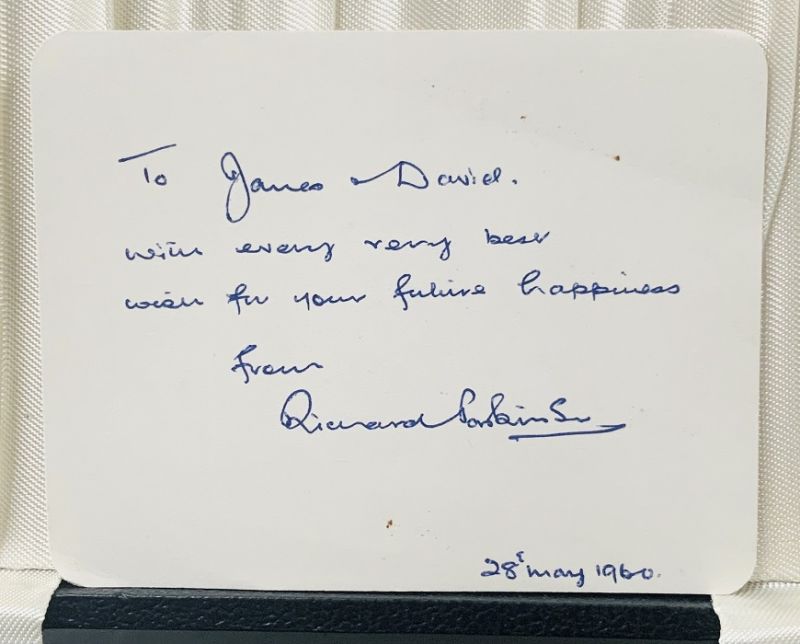 To James & David.
with every very best
wish for your future happiness
from
Richard
28t May 1960.